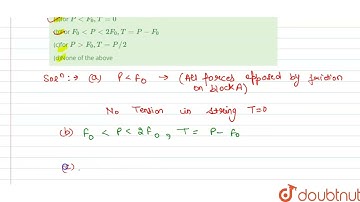 for P < F₀, T = 0
(b)for F₀ < P < 2F₀, T = P − F₀
(c)for P > F₀, T = P/2
(d)None of the above
Solⁿ:→ (a) P < F₀ → (All forces opposed by friction
on block A)
No Tension in string T=0
(b) F₀ < P < 2F₀, T = P − F₀
(c).
doubtnut